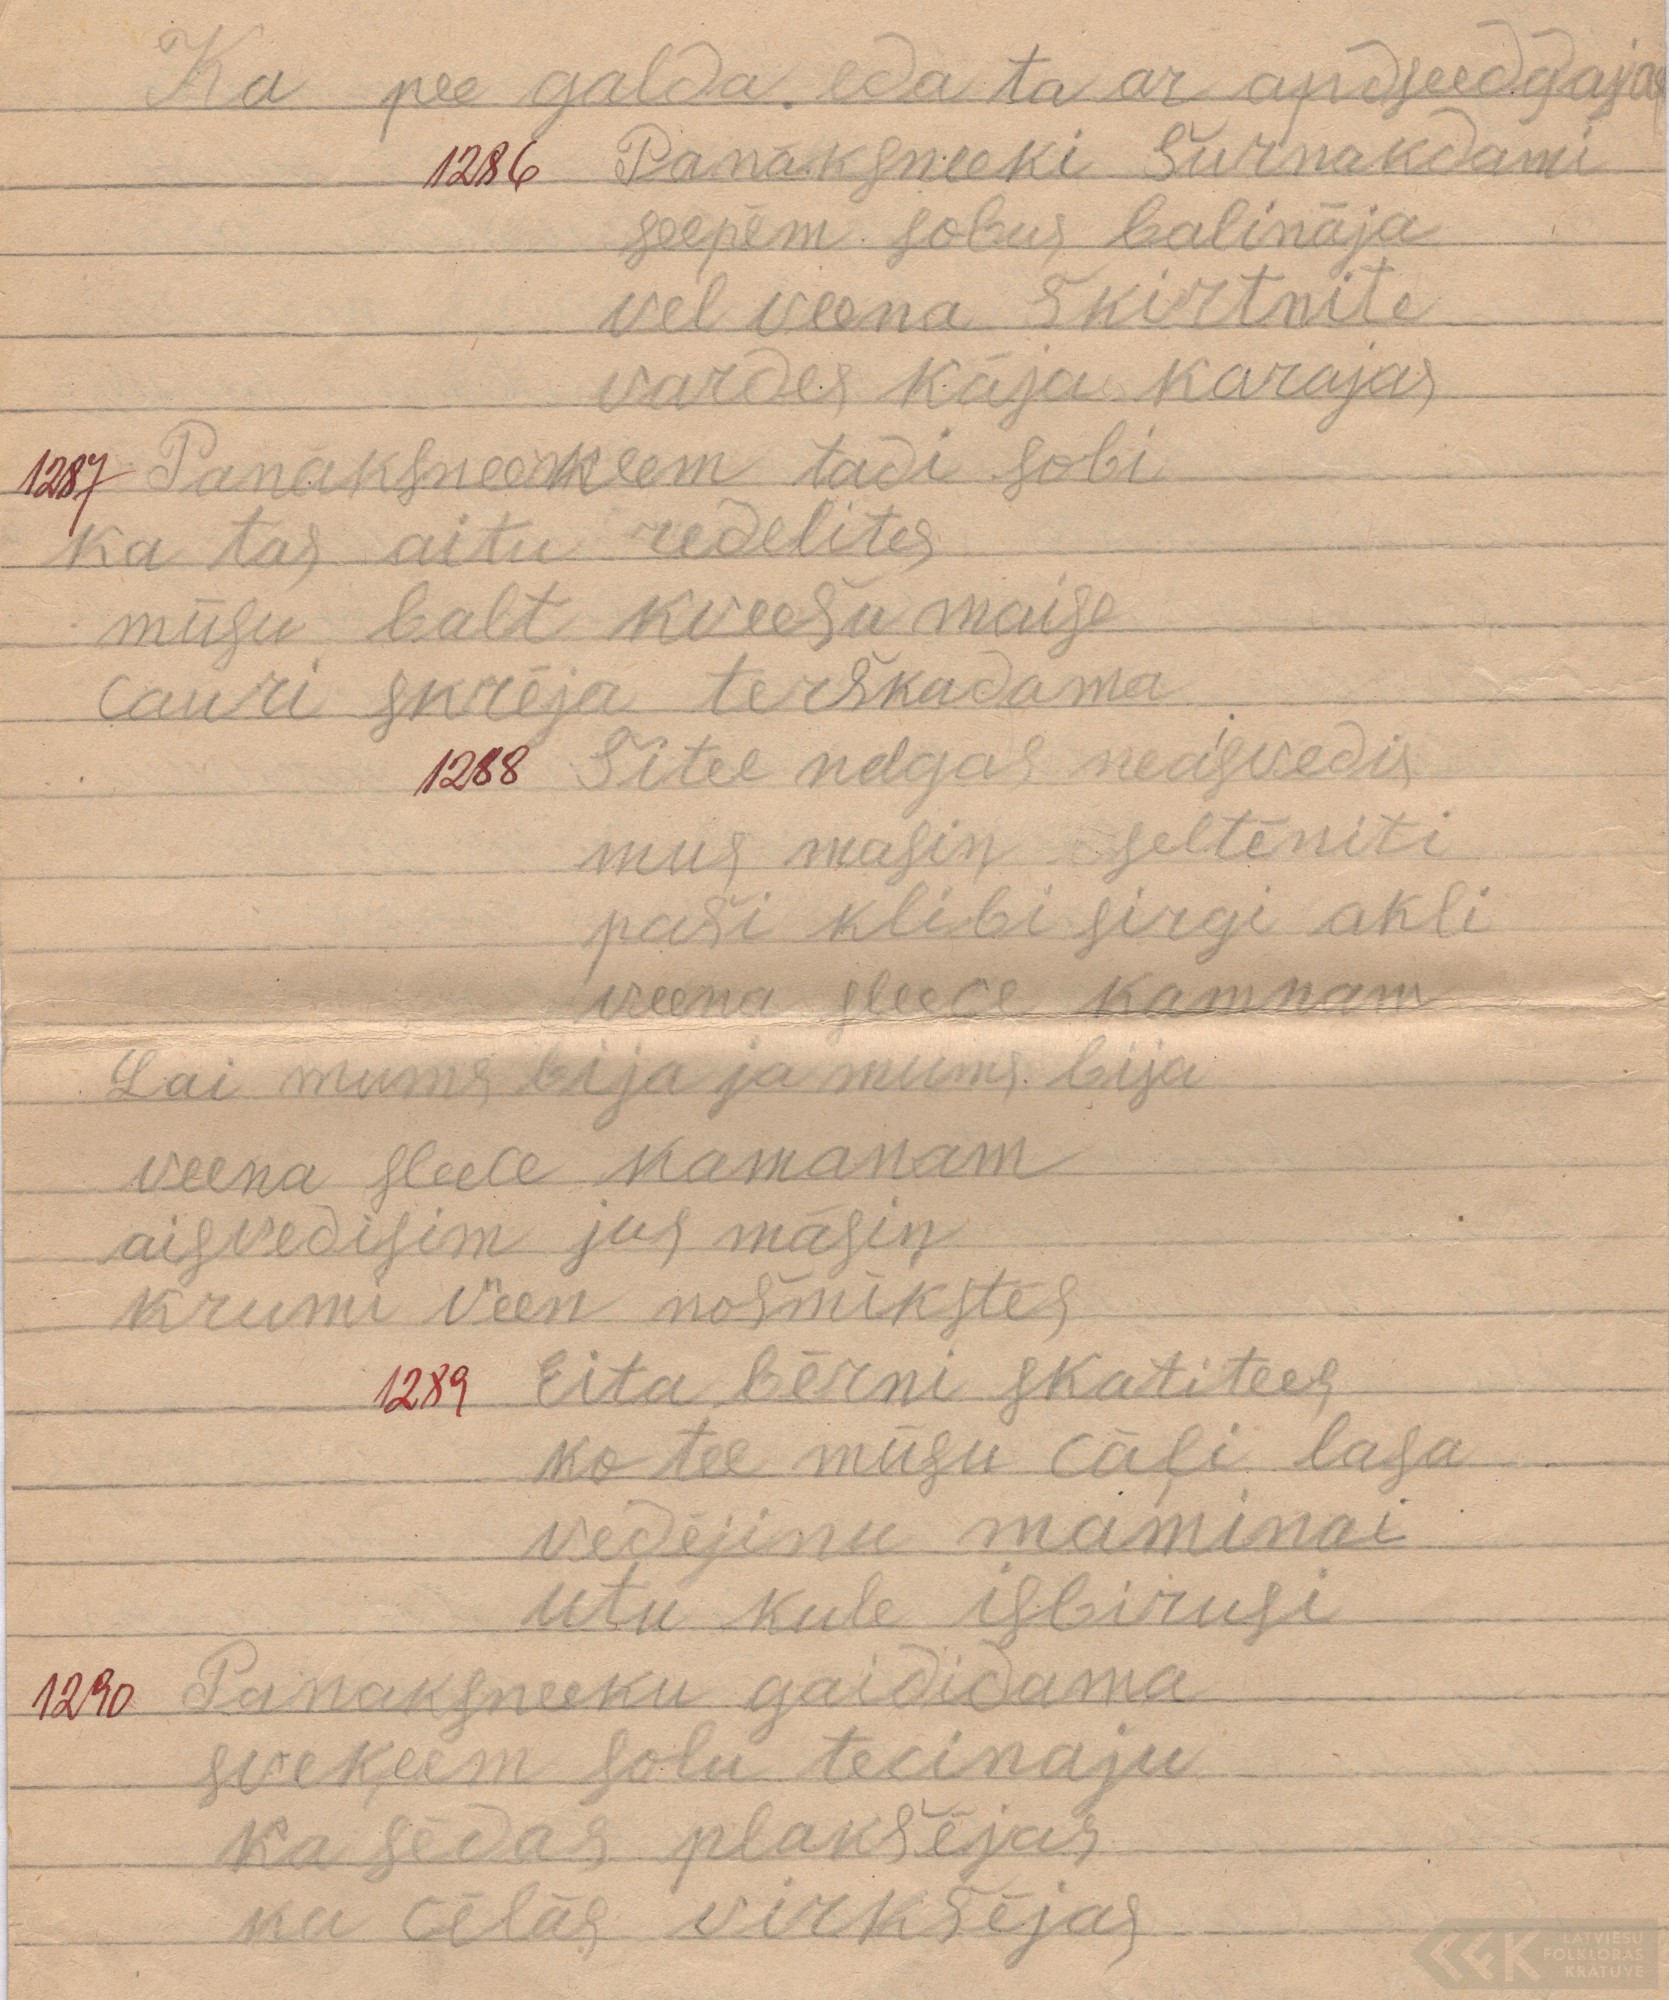 Ka pee galda eda ta ar apdseedgajas
1286 Panāksneeki Šurnakdami
seepēm sobus balināja
vel veena Škirtnite
vardes kāja karajas
1287 Panāksneekeem tadi sobi
ka tas aitu redelites
mūsu balt kveešu maise
cauri skrēja terškadama
1288 Šitee nelgas neaisvedis
mus masiņ seltēniti
paši klibi sirgi akli
veena sleece kamnam
Lai mums bija ja mums bija
veena sleece kamanam
aisvedisim jus māsiņ
krumi veen nošmikstes
1289 Eita bērni skatitees
ko tee mūsu cāļi lasa
vedējinu maminai
utu kule isbirusi
1290 Panaksneeku gaididama
sveķeem solu tecinaju
ka sēdas plakšējas
ka cēlās virkšējas
LATVIEŠU
FOLKLORAS
KRĀTUVE